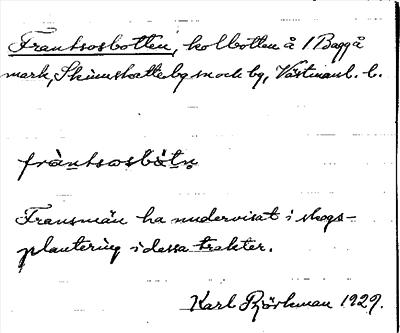 Frantsosbotten, kolbotten å 1 Baggå
mark, Skinnskatteberg sock by, Västmanl. l.
fràntsosbòtn
Fransmän ha undervisat i skogs-
plantering i dessa trakter.
Karl Björkman 1929.